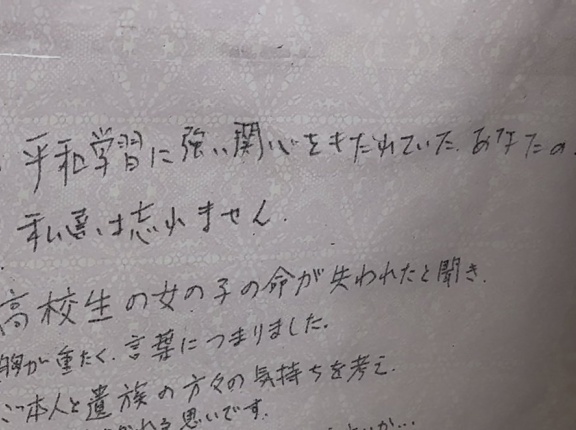 平和学習に強い関心をもたれていた、あなたの
私達は忘れません。
高校生の女の子の命が失われたと聞き、
胸が重たく、言葉につまりました。
ご本人と遺族の方々の気持ちを考え、
思いです。